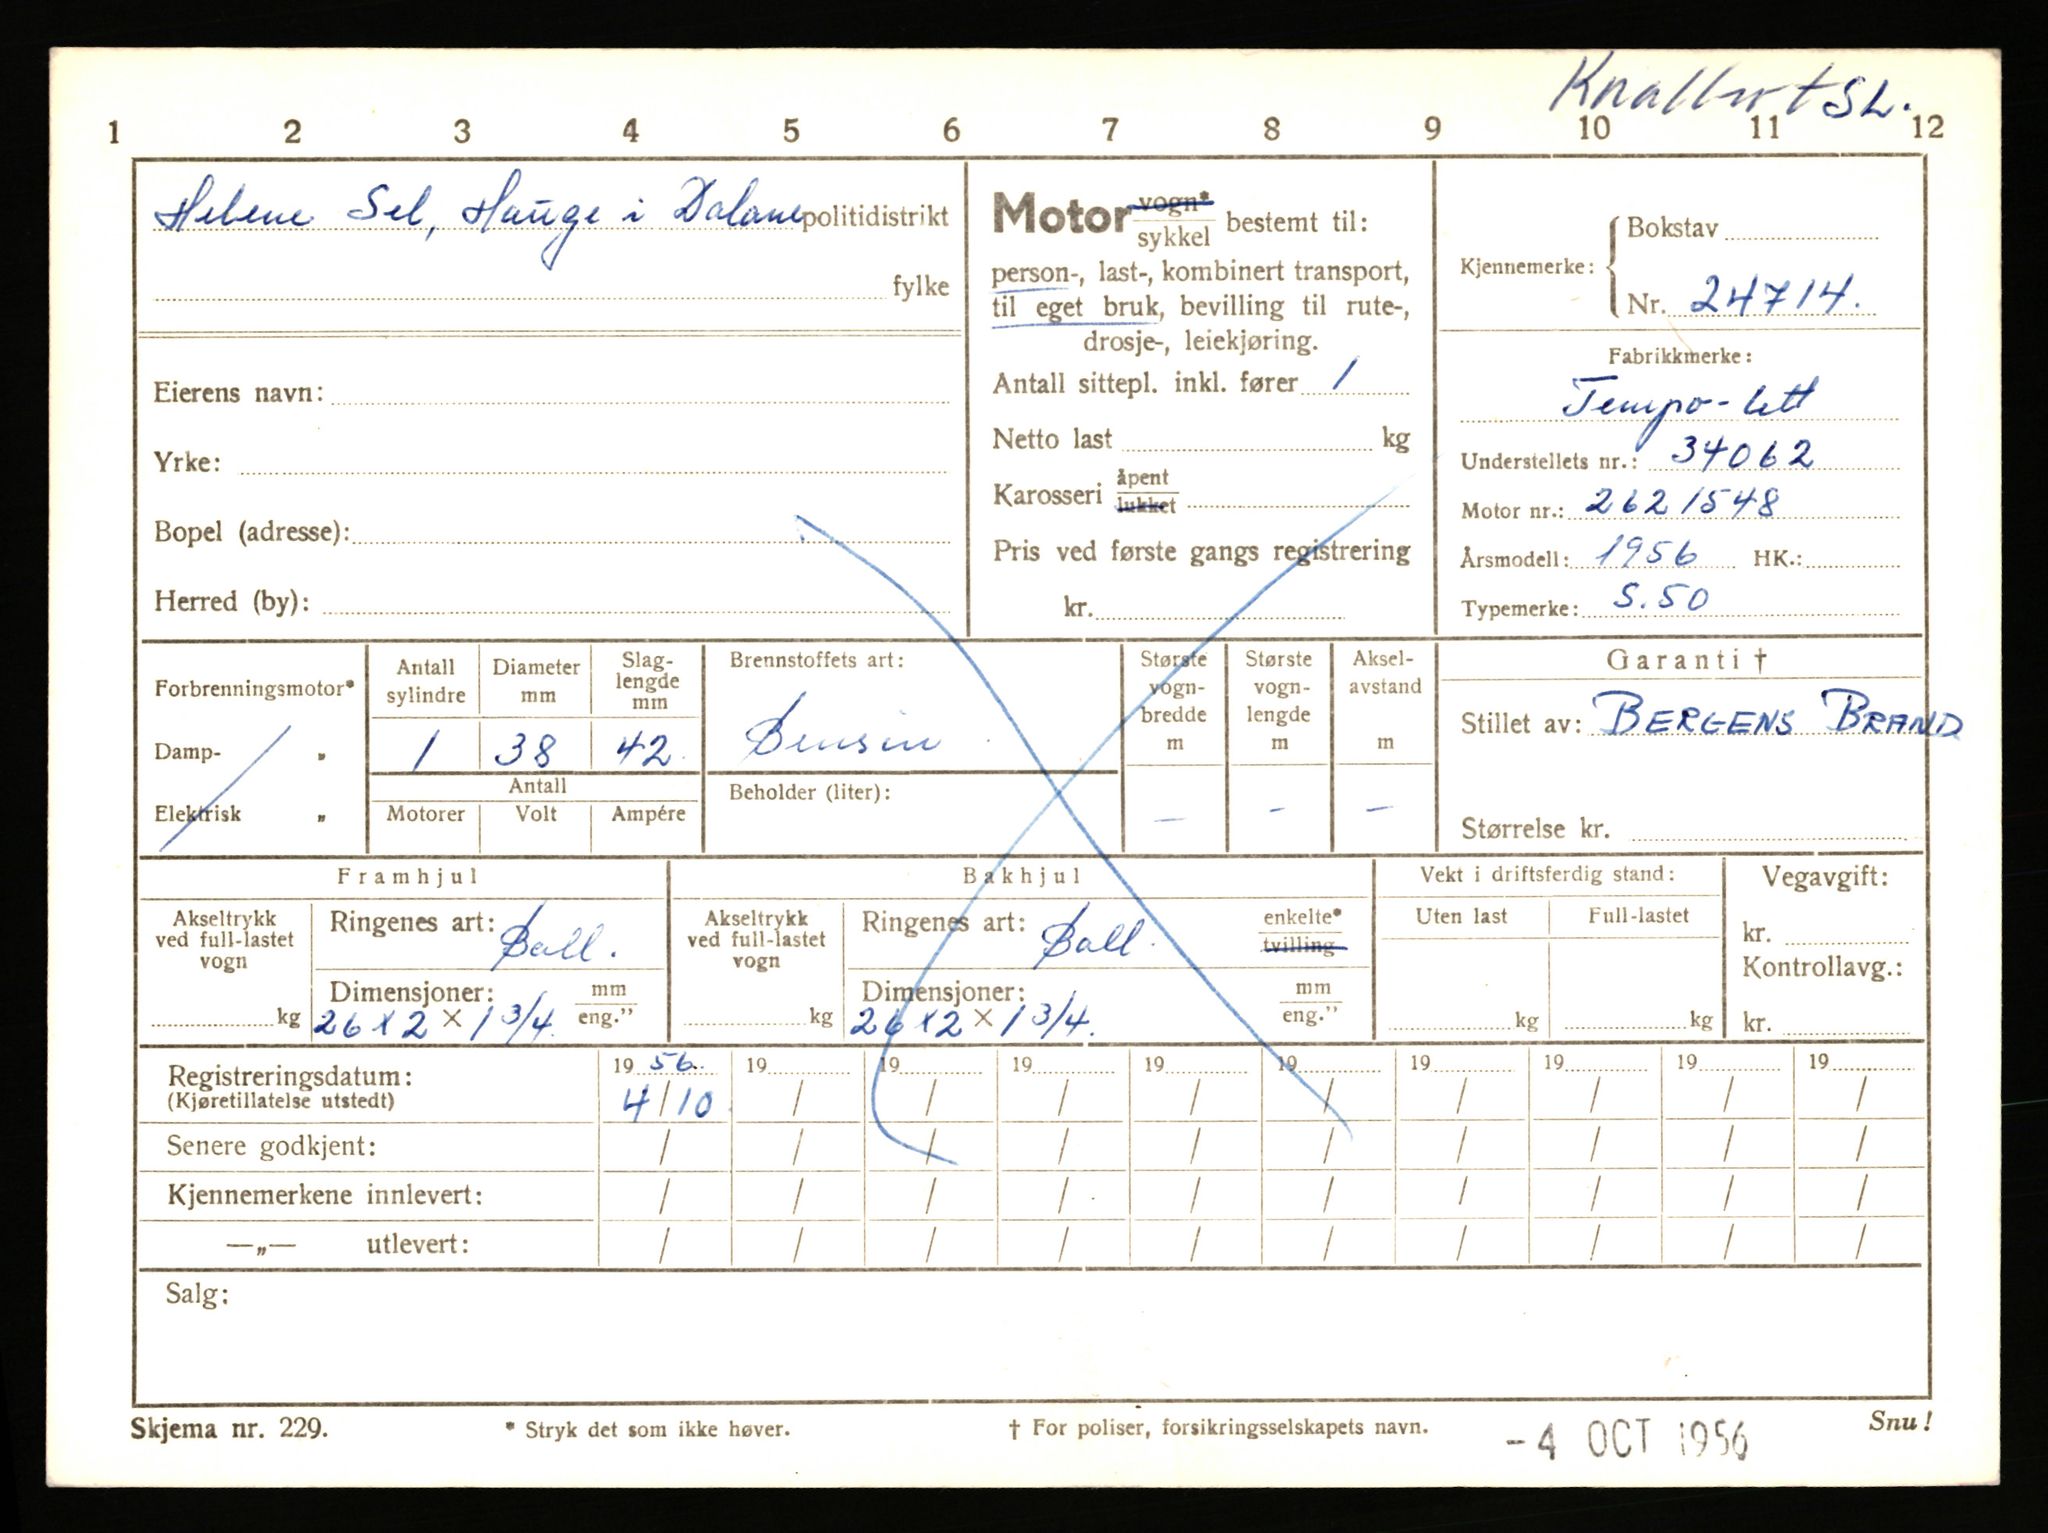 Knallert SL.
1 2 3 4 5 6 7 8 9 10 11 12
Helene Sel, Hauge i Dalane politidistrikt
fylke
Eierens navn:
Yrke:
Bopel (adresse):
Herred (by):
Motor vogn* / sykkel bestemt til:
person-, last-, kombinert transport,
til eget bruk, bevilling til rute-,
drosje-, leiekjøring.
Antall sittepl. inkl. fører 1
Netto last kg
Karosseri åpent / lukket
Pris ved første gangs registrering
kr.
Kjennemerke: { Bokstav
Nr. 24714.
Fabrikkmerke:
Tempo-lett
Understellets nr.: 34062
Motor nr.: 2621548
Årsmodell: 1956 HK.:
Typemerke: S.50
Forbrenningsmotor*
Damp- „
Elektrisk „
Antall sylindre
1
Diameter mm
38
Slag-
lengde
mm
42
Antall
Motorer Volt Ampére
Brennstoffets art:
Bensin
Beholder (liter):
Største
vogn-
bredde
m
–
Største
vogn-
lengde
m
–
Aksel-
avstand
m
–
Garanti †
Stillet av: BERGENS BRAND
Størrelse kr.
Framhjul
Akseltrykk
ved full-lastet
vogn
kg
Ringenes art: Ball.
Dimensjoner: mm / eng.”
26 x 2 × 1 3/4.
Bakhjul
Akseltrykk
ved full-lastet
vogn
kg
Ringenes art: Ball. enkelte* / tvilling
Dimensjoner: mm / eng.”
26 x 2 × 1 3/4.
Vekt i driftsferdig stand:
Uten last Full-lastet
kg kg
Vegavgift:
kr.
Kontrollavg.:
kr.
Registreringsdatum: 19 56. 19 19 19 19 19 19 19 19 19
(Kjøretillatelse utstedt) 4/10. / / / / / / / / /
Senere godkjent: / / / / / / / / / /
Kjennemerkene innlevert: / / / / / / / / / /
—„— utlevert: / / / / / / / / / /
Salg:
Skjema nr. 229. * Stryk det som ikke høver. † For poliser, forsikringsselskapets navn. Snu!
-4 OCT 1956